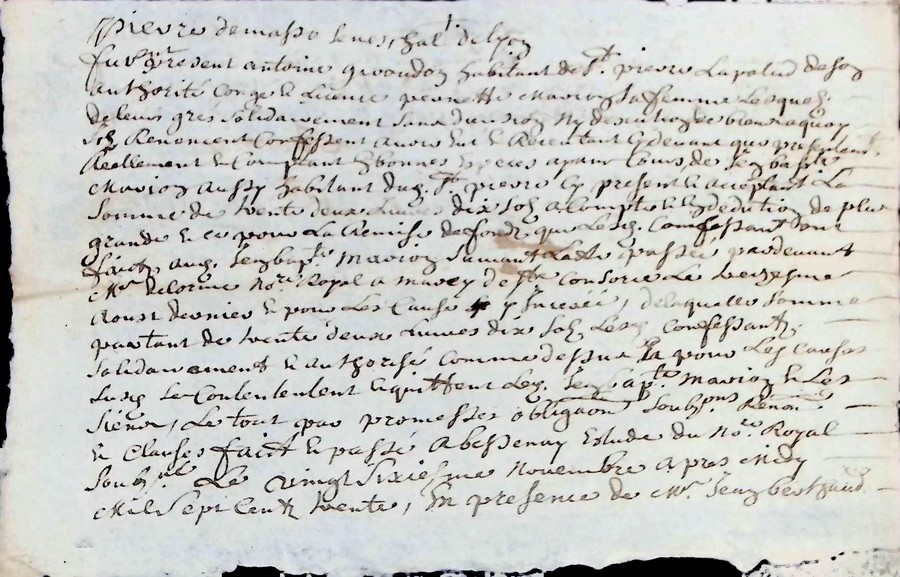 pierre demasso senechal de lyon
fut present antoine giraudon habitant de St. pierre Lapalud de son
authorité Congé et licence pernette Marion sa femme Lesquels
de leurs grés solidairement sans division Ny discution de biens a quoy
ils Renoncent Confessent avoir eut et Receu tant cydevant que presentemt.
Reellement et Comptant En bonnes Especes ayant Cours de Jean bapte
Marion aussy habitant dud. St. pierre Cy present et acceptant La
somme de trente deux Livres dix sols a Compte et En dedution de plus
grande et ce pour La Remise des fonds que Lesd. Confessants ont
faicts aud. Jean bapte. Marion suivant L'acte passé pardevant
Me. delorme Nore. Royal a Messy de Ste Consorce Le treizesme
aoust dernier et pour Les Causes y Inserées, delaquelle somme
partant de trente deux Livres dix sols Lesd. Confessants
solidairement et authorisé Comme dessus pour Les Causes
susd. se Contentent et quittent Led. Jean bapte Marion et Les
siens, Le tout par promesses obligaons soubsons Renons
et Clauses faict et passé a bessenay Estude du Nore. Royal
soubsné Le vingt sixiesme Novembre apres Midy
Mil sept Cents trente, En presence de Mr. Jean berthaud